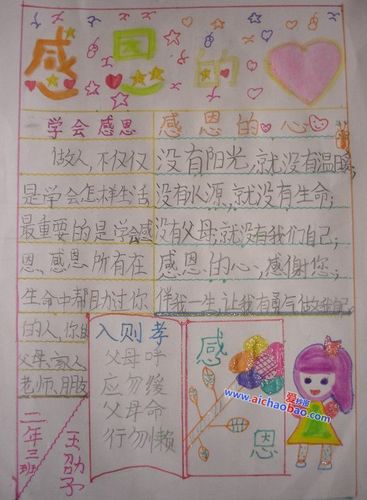 感恩的
学会感恩
做人,不仅仅
是学会怎样生活
最重要的是学会感
恩,感恩所有在
生命中帮助过你
的人,你的
父母、家人
老师、朋友
感恩的心
没有阳光,就没有温暖;
没有水源,就没有生命;
没有父母,就没有我们自己;
感恩的心,感谢您;
伴我一生,让我有勇气做我自己
入则孝
父母呼
应勿缓
父母命
行勿懒
感
恩
爱抄报
www.aichaobao.com
二年三班
王劭予